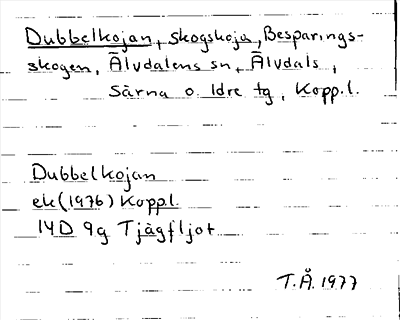 Dubbelkojan, skogskoja, Besparings-
skogen, Älvdalens sn, Älvdals,
Särna o. Idre tg, Kopp.l.
Dubbelkojan
ek (1976) Kopp.l.
14D 9g Tjägfljot
T.Å. 1977